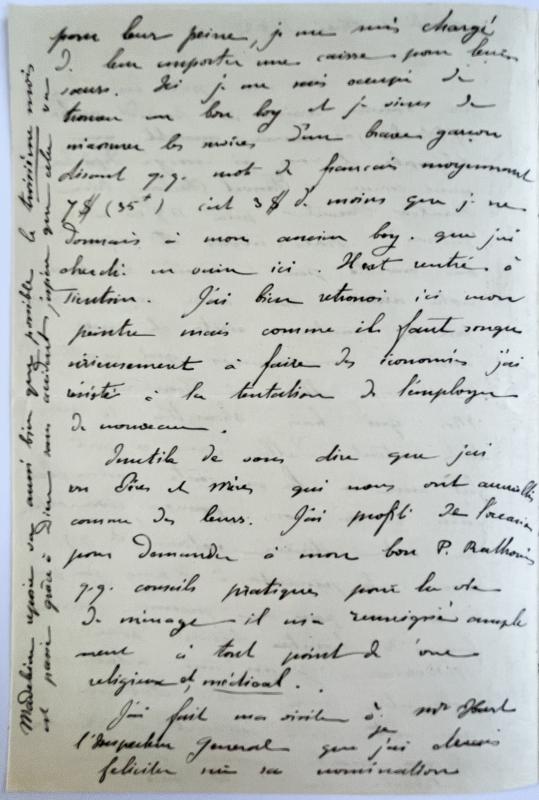 pour leur peine, je me suis chargé
de leur emporter une caisse pour leurs
sœurs. Ici je me suis occupé de
trouver un bon boy et je viens de
les services d'un brave garçon
disant q.q. mot de français moyennant
7$ (35f) c'est 3$ de moins que je ne
donnais à mon ancien boy que j'ai
cherché en vain ici. Il est rentré à
Tientsin. J'ai bien retrouvé ici mon
peintre mais comme il faut songer
sérieusement à faire des économies j'ai
résisté à la tentation de l'employer
de nouveau.
Inutile de vous dire que j'ai
vu Pères et Mères qui nous ont accueillis
comme des leurs. J'ai profité de l'occasion
pour demander à mon bon P.
q.q. conseils pratiques pour la vie
de ménage il m'a renseigné ample
ment à tout point de vue
religieux et médical.
J'ai fait ma visite à Mr
l'Inspecteur Général que j'ai
féliciter sa nomination
Madeleine aussi bien que possible le troisième mois
est passé grâce à Dieu sans accident j'espère que cela va